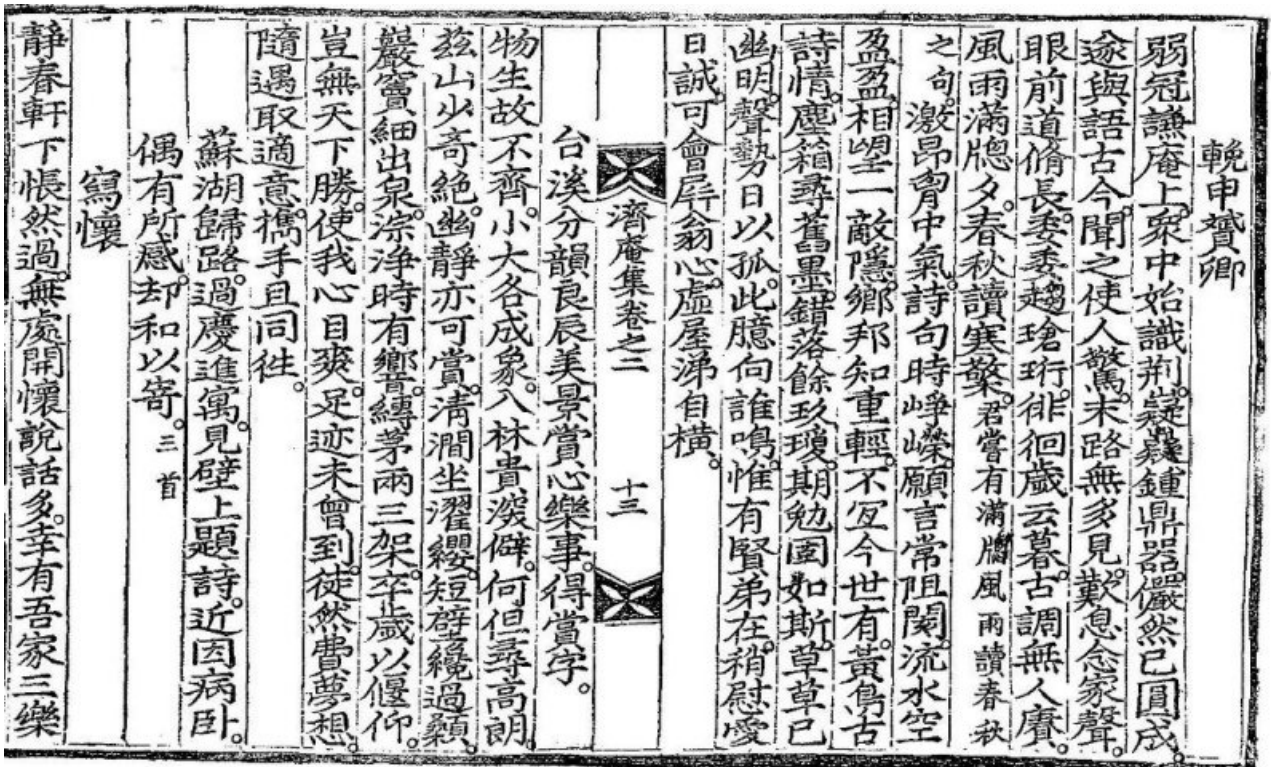 輓申贇卿
弱冠謙庵上。衆中始識荆。嶷嶷鍾鼎器。儼然已圓成。
遂與語古今。聞之使人驚。末路無多見。歎息念家聲。
眼前道脩長。委委趨瑲珩。徘徊歲云暮。古調無人賡。
風雨滿牕夕。春秋讀寒檠。君嘗有滿牕風雨讀春秋
之句。激昂胷中氣。詩句時崢嶸。願言常阻闋。流水空
盈盈。相望一敵隱。鄕邦知重輕。不宜今世有。黃鳥古
詩情。塵箱尋舊墨。錯落餘玖瓊。期勉固如斯。草草已
幽明。聲勢日以孤。此臆向誰鳴。惟有賢弟在。稍慰愛
日誠。可會孱翁心。虛屋涕自橫。
濟庵集卷之二 十三
台溪分韻良辰美景賞心樂事。得賞字。
物生故不齊。小大各成象。入林貴深僻。何但尋高朗。
茲山少奇絶。幽靜亦可賞。淸澗坐濯纓。短壁纔過顙。
巖竇細出泉。淙淨時有響。縳茅兩三架。卒歲以偃仰。
豈無天下勝。使我心目爽。足迹未曾到。徒然費夢想。
隨遇取適意。携手且同徃。
蘇湖歸路。過慶進寓。見壁上題詩。近因病臥。
偶有所感。却和以寄。三首
寫懷
靜春軒下悵然過。無處開懷說話多。幸有吾家三樂